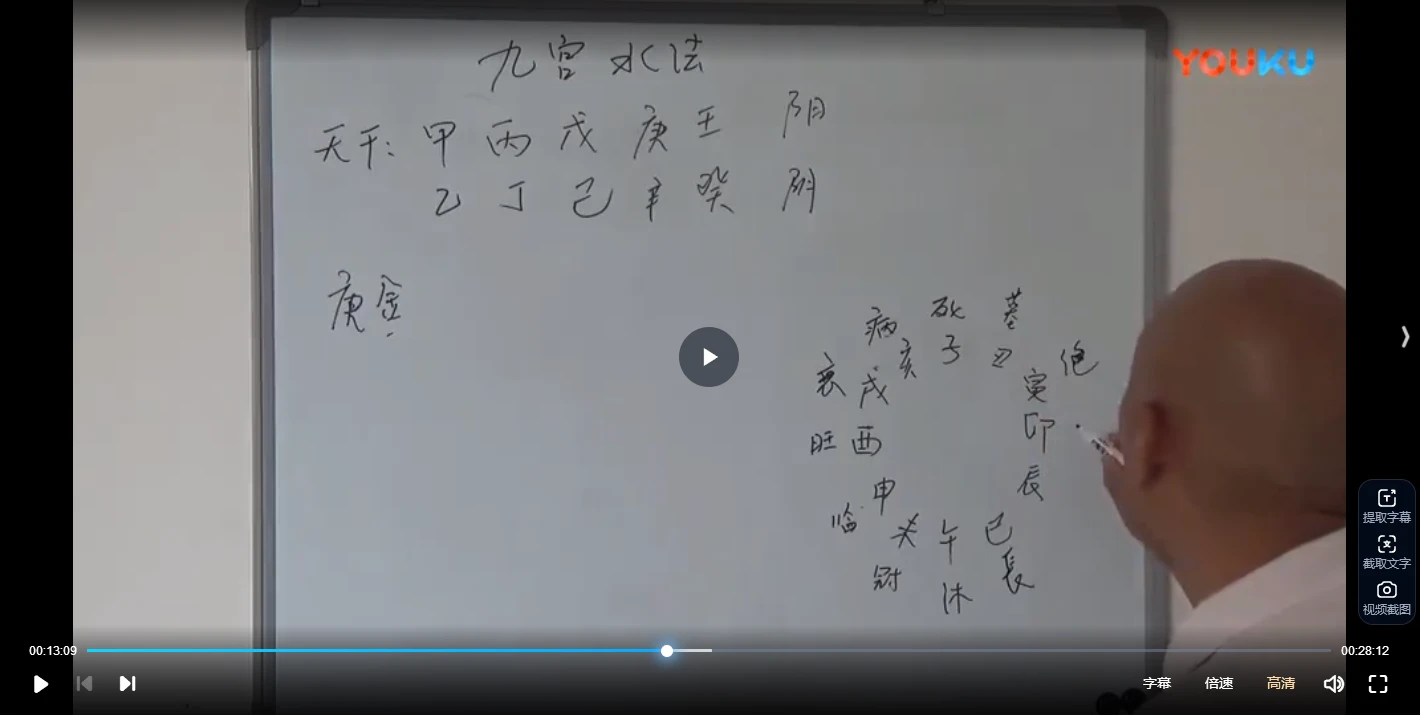 九宫水法
YOUKU
天干: 甲 丙 戊 庚 壬 阳
乙 丁 己 辛 癸 阴
庚金
病 死 墓
衰 戌 亥 子 丑 寅 绝
旺 酉 卯
临 申 辰
未 午 巳
冠 沐 長
提取字幕
截取文字
视频截图
00:13:09
00:28:12
字幕 倍速 高清